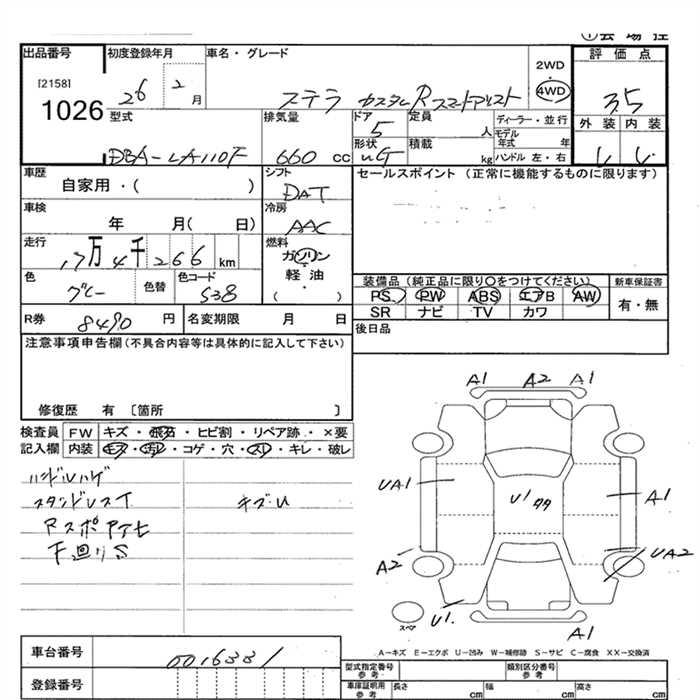 ① 会場控
出品番号 初度登録年月 車名・グレード 2WD・4WD 評価点
[2158] 1026
26 2月 ステラ カスタムR スマートアシスト 3.5
型式 排気量 ドア 定員 ディーラー・並行 外装 内装
DBA-LA110F 660cc 5 人 モデル年式 年
形状 積載 kg ハンドル 左・右
車歴 シフト セールスポイント(正常に機能するものに限ります)
自家用・( ) DAT
車検 冷房
年 月( 日) AAC
走行 燃料
17万4千266km ガソリン・軽油・( )
色 色替 色コード 装備品(純正品に限り○をつけてください) 新車保証書
グレー S38 PS PW ABS エアB AW 有・無
SR ナビ TV カワ
R券 8490円 名変期限 月 日 後日品
注意事項申告欄(不具合内容等は具体的に記入して下さい)
修復歴 有 〔箇所 〕
検査員 FW キズ・飛石・ヒビ割・リペア跡・×要
記入欄 内装 キズ・汚レ・コゲ・穴・スレ・キレ・破レ
ハンドルハゲ
スタンドレスT キズU
下廻りS
A1 A2 A1
UA1 U1 A1
A2 UA2
U1 A1
スペア
A-キズ E-エクボ U-凹み W-補修跡 S-サビ C-腐食 XX-交換済
車台番号 0016331
登録番号
型式指定番号 参考 類別区分番号 参考
車庫証明用 参考 長さ cm 幅 cm 高さ cm